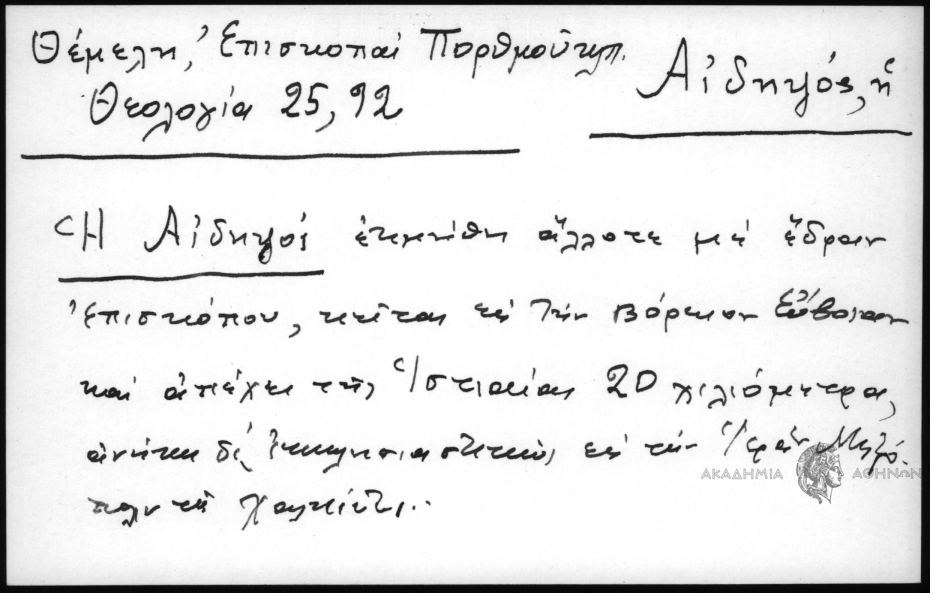 Θέμελη, Ἐπισκοπαί Πορθμοῦ κλπ.
Θεολογία 25, 92
Αἰδηψός, ἡ
Ἡ Αἰδηψός ἐτιμήθη ἄλλοτε μέ ἕδραν
Ἐπισκόπου, κεῖται εἰς τήν Βόρειον Εὔβοιαν
καί ἀπέχει τῆς Ἱστιαίας 20 χιλιόμετρα,
ἀνήκει δέ ἐκκλησιαστικῶς εἰς τήν Ἱεράν Μητρό-
πολιν τῆς Χαλκίδος..
ΑΚΑΔΗΜΙΑ ΑΘΗΝΩΝ